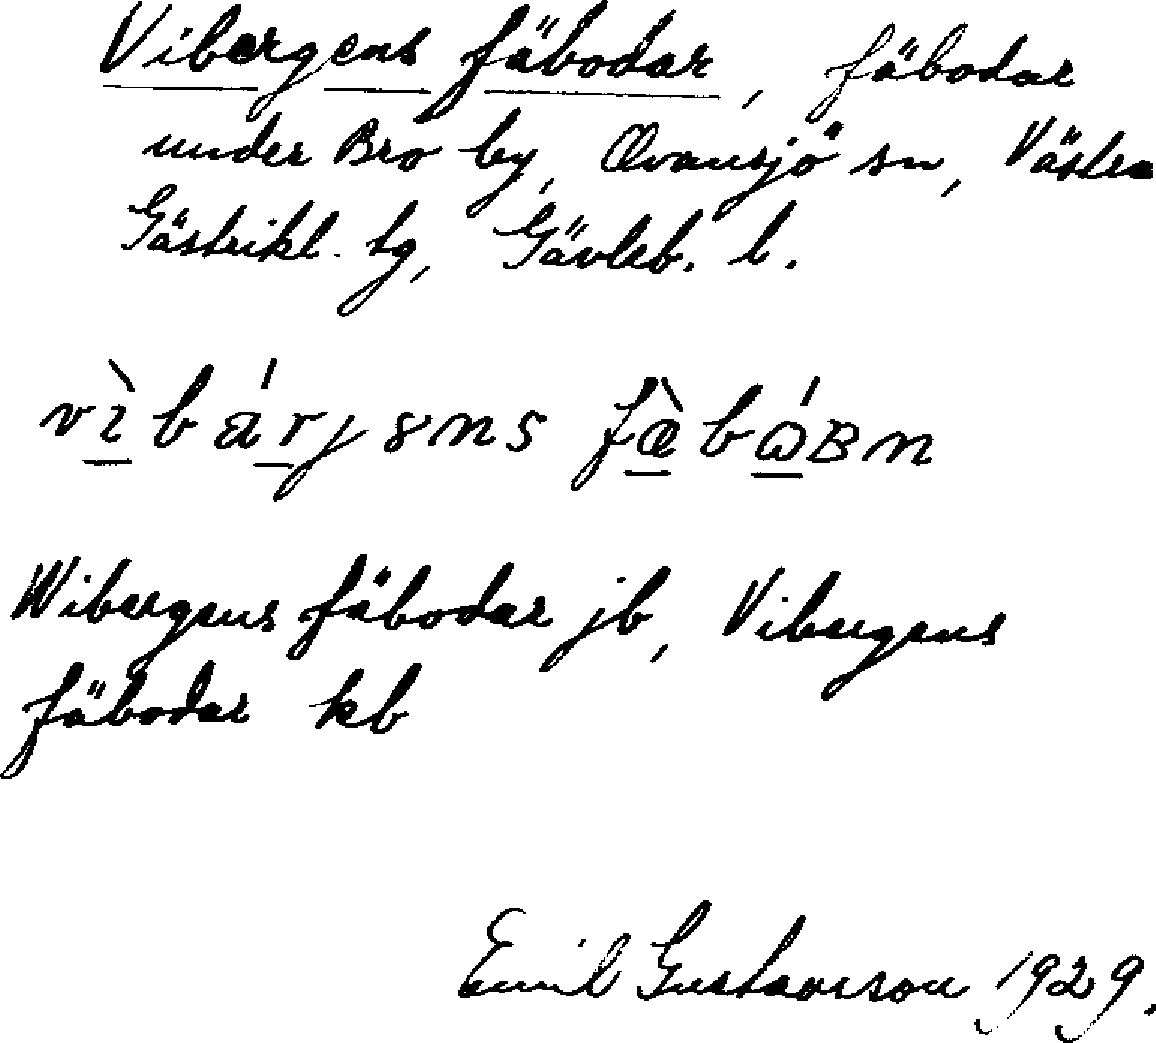 Vibergens fäbodar, fäbodar
under Bro by, Ovansjö sn, Västra
Gästrikl. tg, Gävleb. l.
Wibergens fäbodar jb, Vibergens
fäbodar kb
Emil Gustavsson 1929.